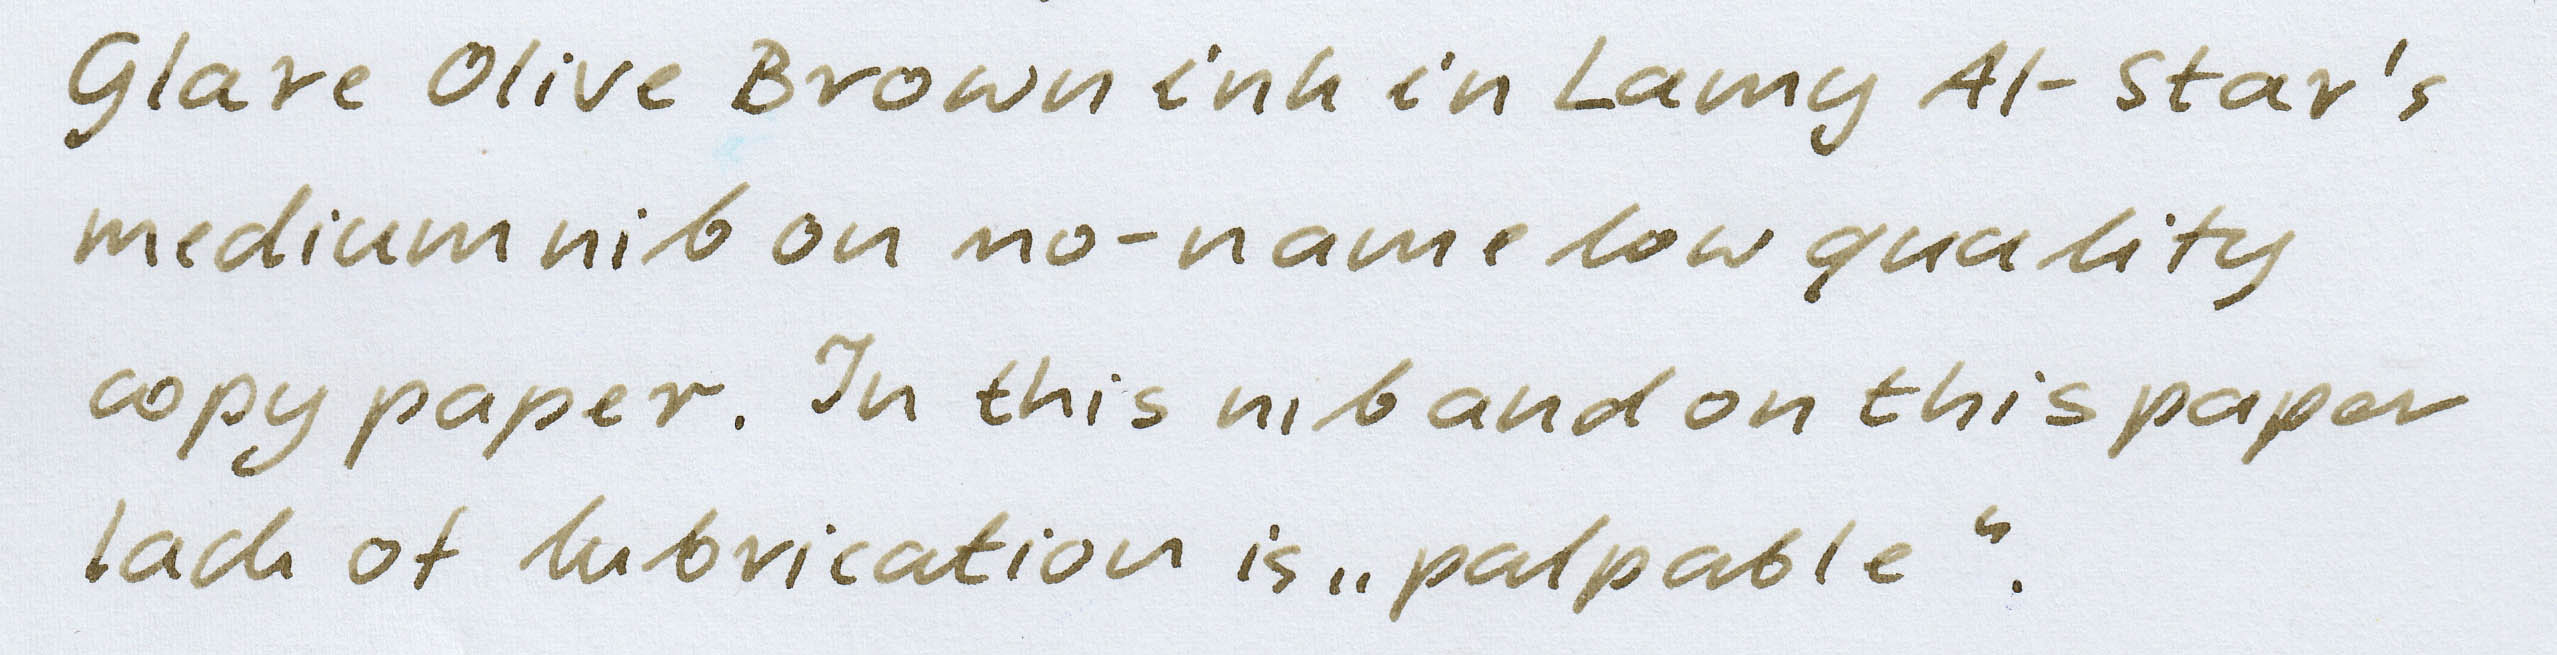 Glare Olive Brown ink in Lamy Al-Star's
medium nib on no-name low quality
copy paper. In this nib and on this paper
lack of lubrication is „palpable“.